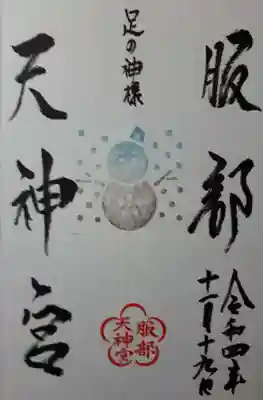 服部
令和四年
十二月十九日
足の神様
天神宮
服部
天神宮